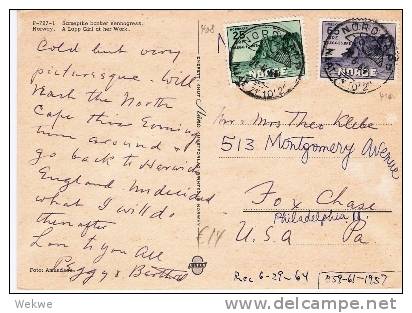 P-727-1 Samepike banker sennagress.
Norway. A Lapp Girl at her Work.
Cold but very
picturesque. Will
reach the North
Cape this Evening
turn around &
go back to Harwich
England. Undecided
what I will do
thereafter
Love to you All
Peggy &
Foto: Amundsen
408
25
NORGE
65
NORGE
NORD
71°10'2
Mr & Mrs Theo Klebe
513 Montgomery Avenue
Fox Chase
Philadelphia 11.
U.S.A Pa
€14
Rec 6-29-64
1957
Wekwe